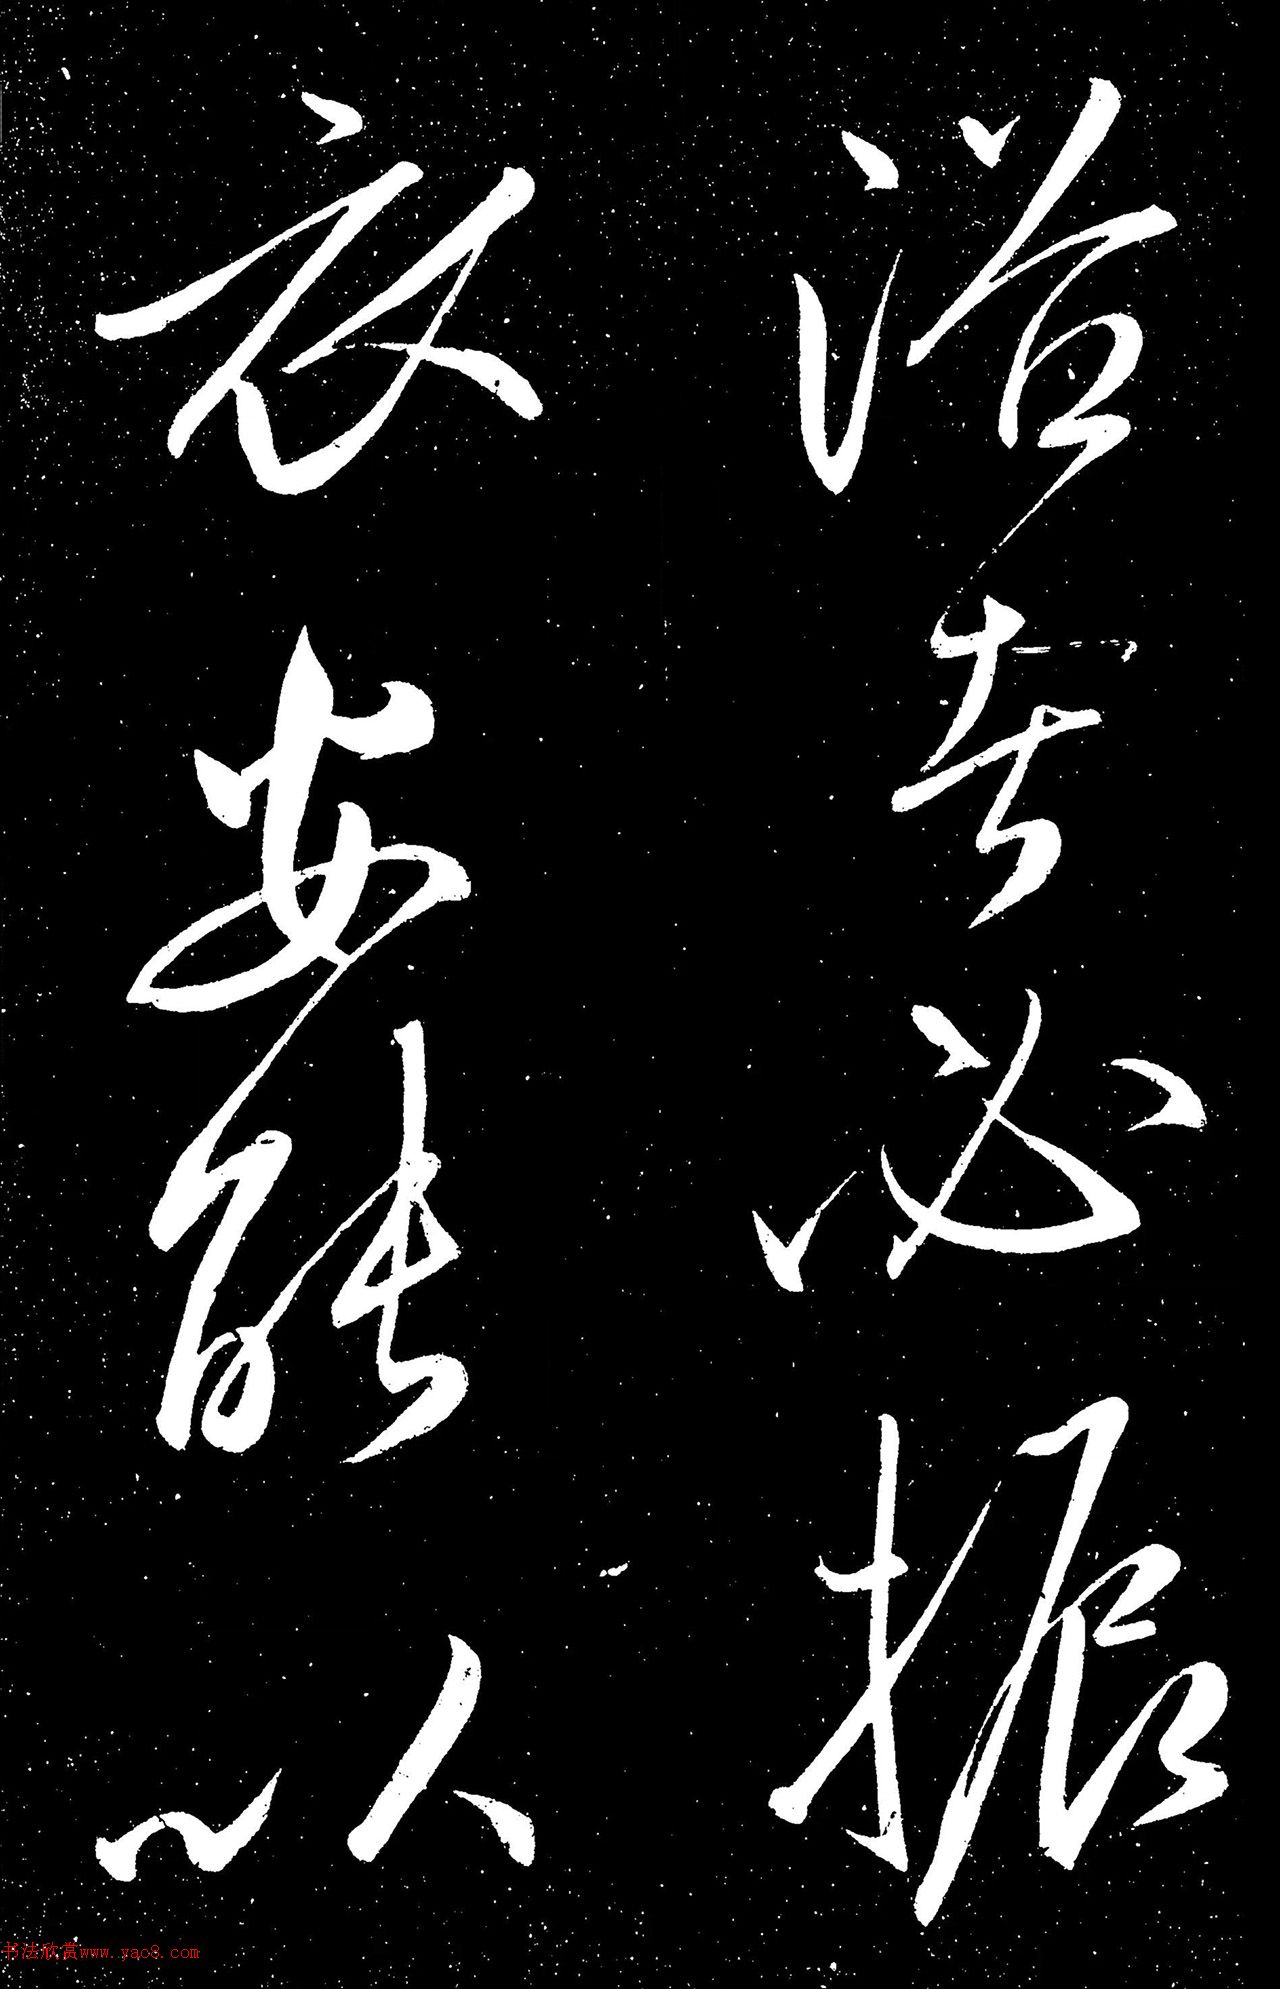 浴者必振
衣安能以
书法欣赏www.yac8.com